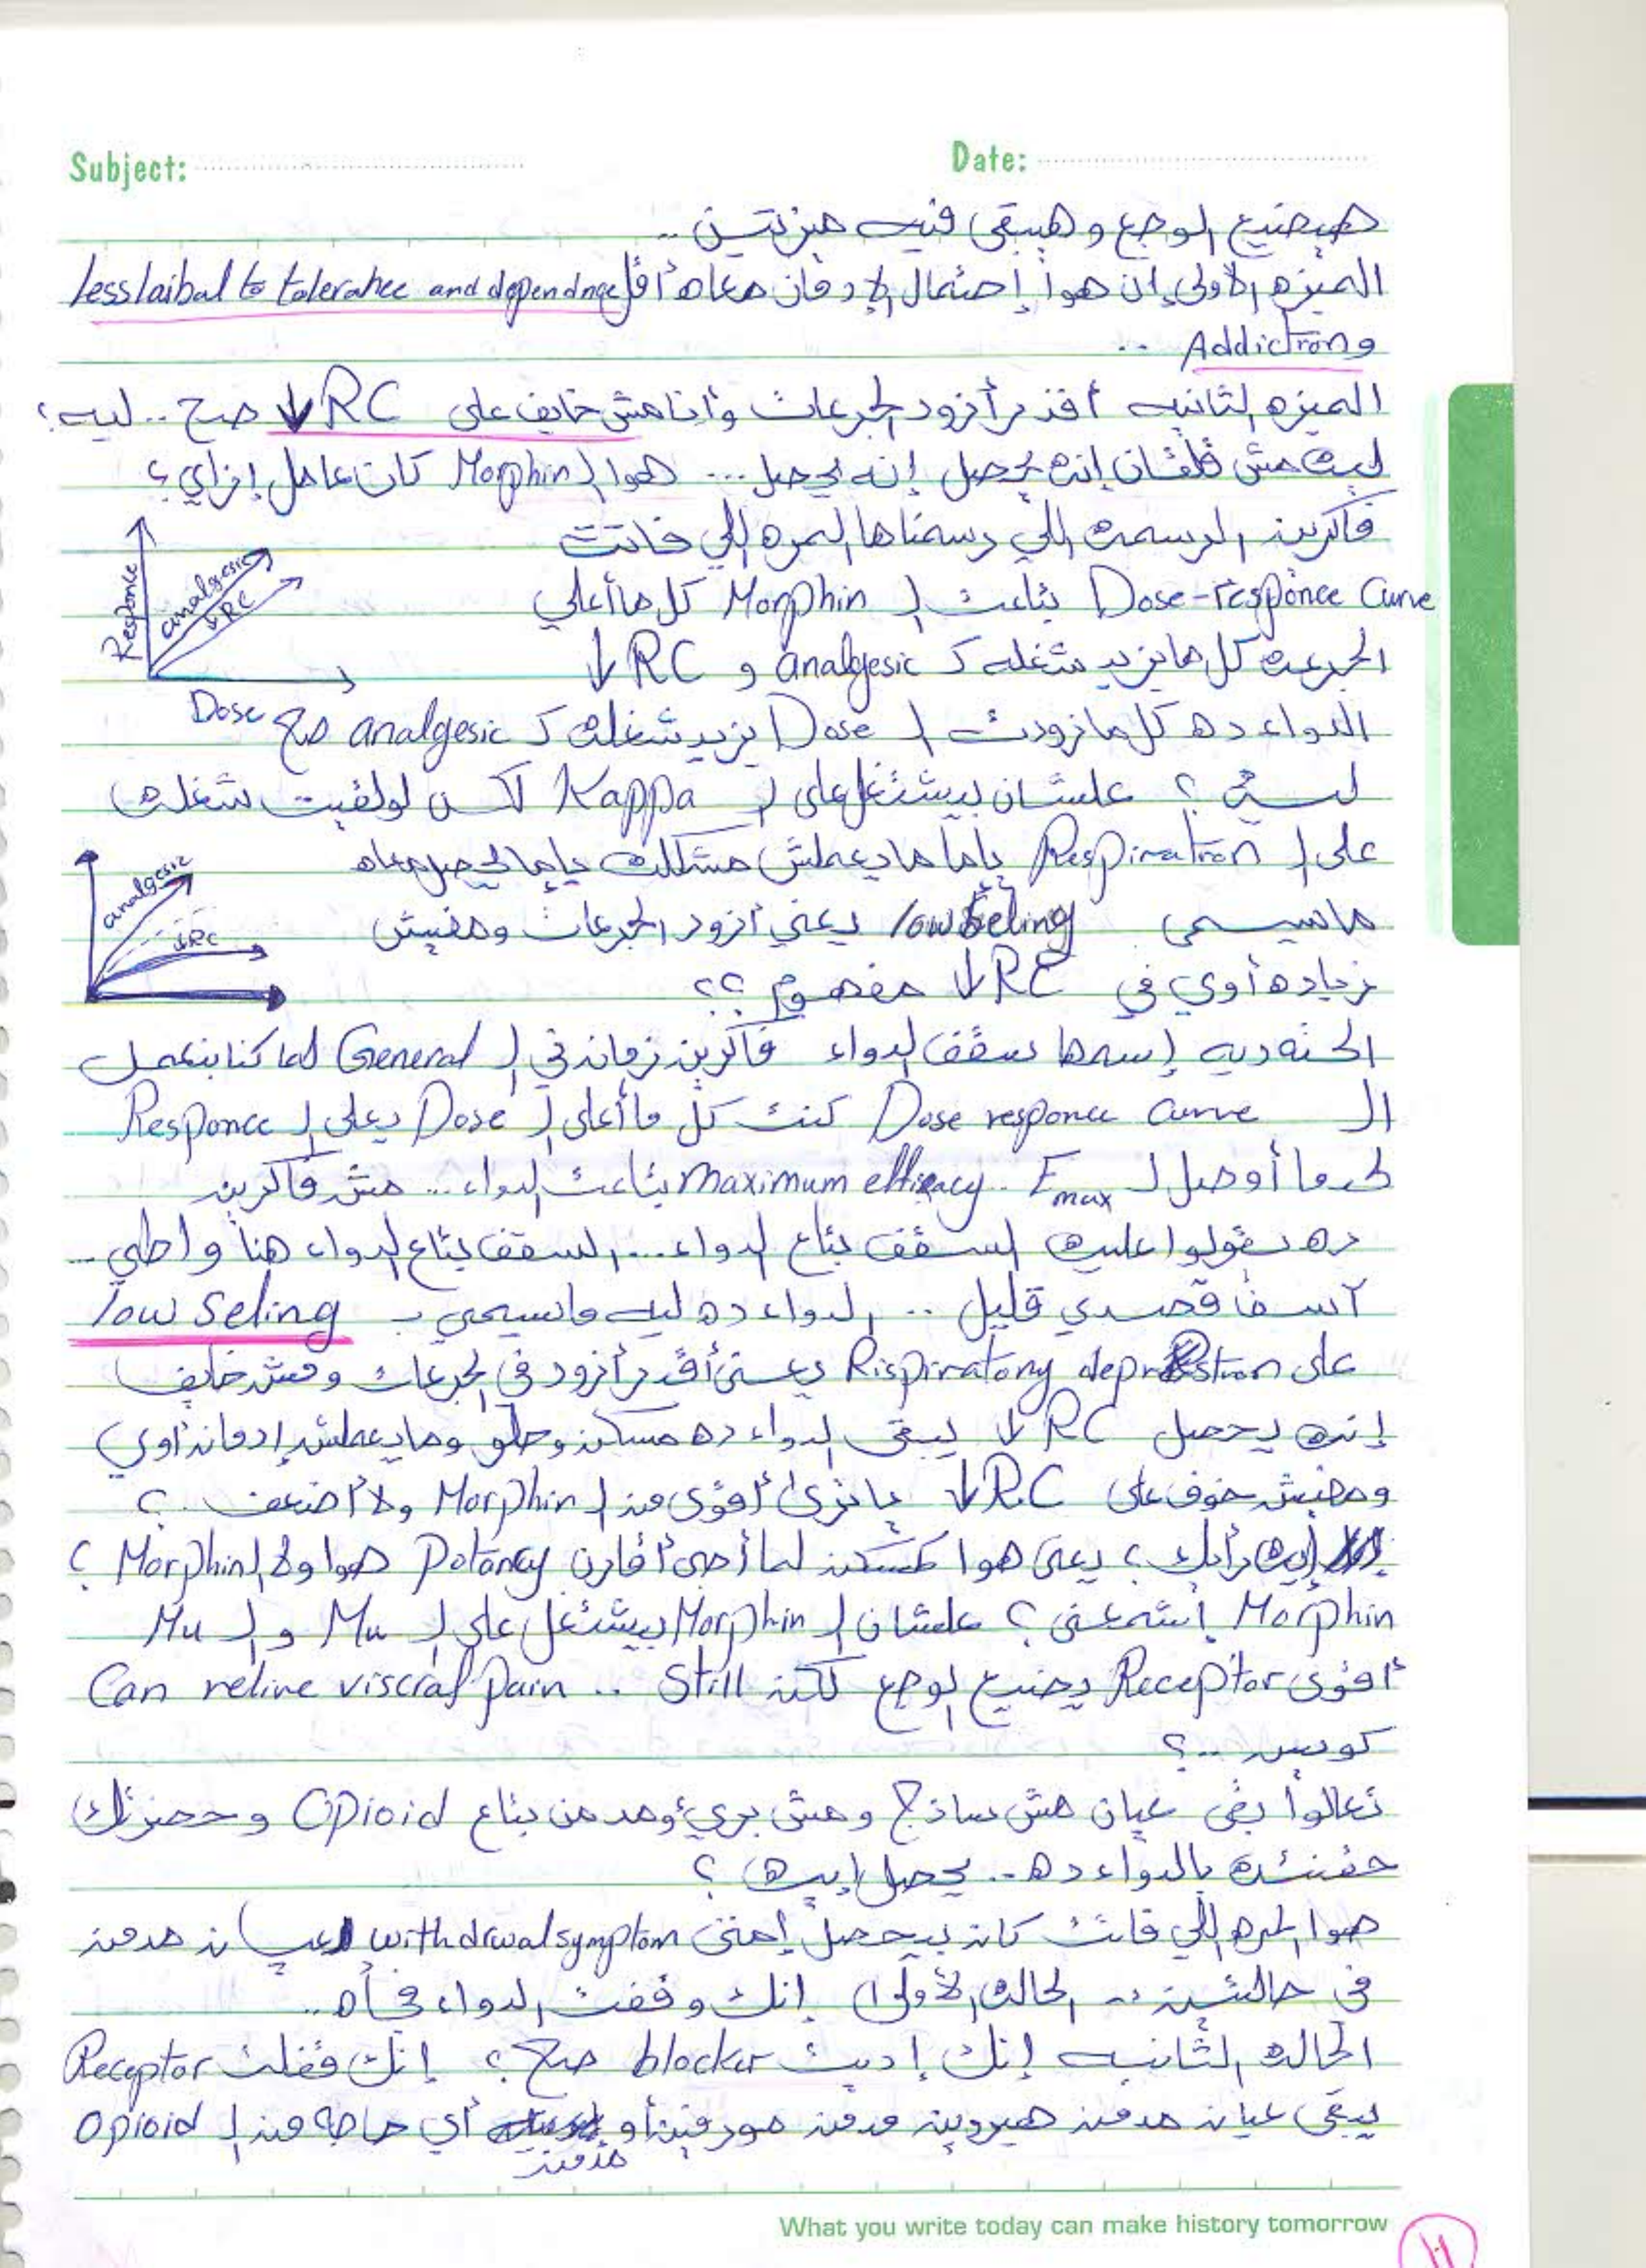 Subject:
Date:
هيضيع الوجع وهيبقى فيه ميزتين ..
الميزه الأولى إن هوا إحتمال الإدمان معاه أقل less laibal to tolerance and dependnce
و Addiction ..
الميزه الثانيه أقدر أزود الجرعات وأنا مش خايف على ↓RC صح .. ليه ؟
ليه مش قلقان إنه يحصل إنه يحصل ... هوا ال Morphin كان عامل إزاي ؟
فاكرين الرسمه اللي رسمناها المره اللي فاتت
Dose-responce Curve بتاعت ال Morphin كل ما أعلي
الجرعه كل ما يزيد شغله ك analgesic و RC ↓
Responce
analgesic
↓RC
Dose
الدواء ده كل ما زودت ال Dose يزيد شغله ك analgesic صح
ليه ؟ علشان بيشتغل على ال Kappa لكن لو لقيت شغله
على ال Respiration ياما ما يعملش مشكله ياما يحصل معاه
ما يسمى low seling يعني أزود الجرعات ومفيش
analgesic
↓RC
زياده أوي في RC ↓ مفهوم ؟؟
الحته ديه إسمها سقف الدواء فاكرين زمان في ال General لما كنا بنعمل
ال Dose responce curve كنت كل ما أعلى ال Dose يعلى ال Responce
لحد ما أوصل ل Emax. maximum efficacy بتاعت الدواء ... مش فاكرين
ده بيقولوا عليه السقف بتاع الدواء ... السقف بتاع الدواء هنا واطي ..
آسف قصدي قليل .. الدواء ده ليه ما يسمى ب low seling
على Rispiratory depression يعني أقدر أزود في الجرعات ومش خايف
إنه يحصل RC ↓ يبقى الدواء ده مسكن وحلو وما يعملش إدمان أوي
ومفيش خوف على RC ↓ يا ترى أقوى من ال Morphin ولا أضعف .؟
إيه رأيك ؟ يعني هوا كمسكن لما أجي أقارن Potancy هوا ولا ال Morphin ؟
Morphin إشمعنى ؟ علشان ال Morphin بيشتغل على ال Mu و ال Mu
أقوى Receptor يضيع الوجع لكن Still .. Can relive viscral pain
كويس ..؟
تعالوا بقى عيان مش ساذج ومش بريء ومدمن بتاع Opioid وحضرتك
حقنته بالدواء ده .. يحصل إيه ؟
هوا المره اللي فاتت كان بيحصل إمتى withdrwal symptom لعيان مدمن
في حالتين .. الحاله الأولى إنك وقفت الدواء فجأه ..
الحاله الثانيه إنك إديت blocker صح ؟ إنك قفلت Receptor
يبقى عيان مدمن هيروين مدمن مورفين أو مدمن أي حاجه من ال Opioid
What you write today can make history tomorrow
11